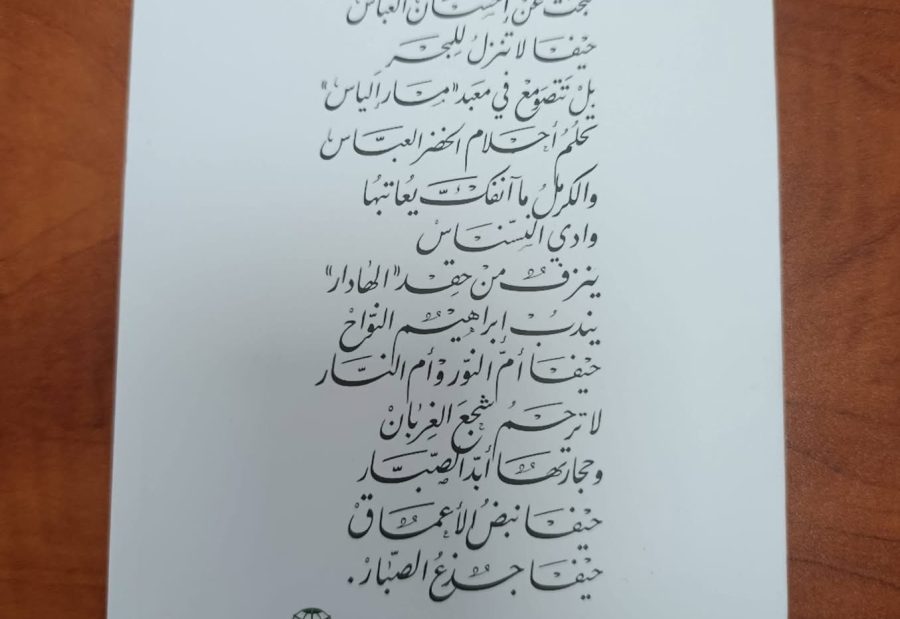 تبحث عن إنسان العباس
حيفا لا تنزل للبحر
بل تتصومع في معبد "مار الياس"
تحلم أحلام الخضر العباس
والكرمل ما آنفك يعاتبها
وادي النسناس
ينزف من حقد "الهادار"
يندب إبراهيم النواح
حيفا أم النور وأم النار
لا ترحم شجع الغربان
وحجارتها أبد الصبار
حيفا نبض الأعماق
حيفا جذع الصبار.